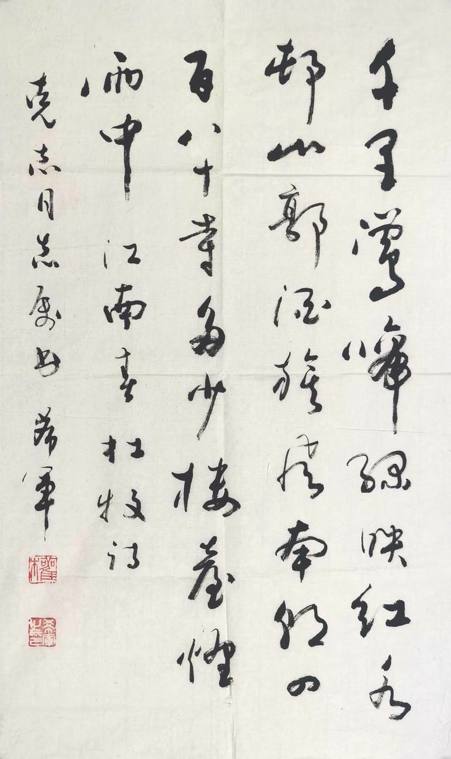 千里莺啼绿映红水
邨山郭酒旗风南朝四
百八十寺多少楼台烟
雨中 江南春杜牧诗
克志同志属书 希军